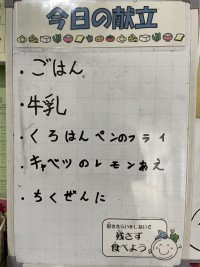 今日の献立
・ごはん
・牛乳
・くろはんぺんのフライ
・キャベツのレモンあえ
・ちくぜんに
好ききらいをしないで
残さず
食べよう